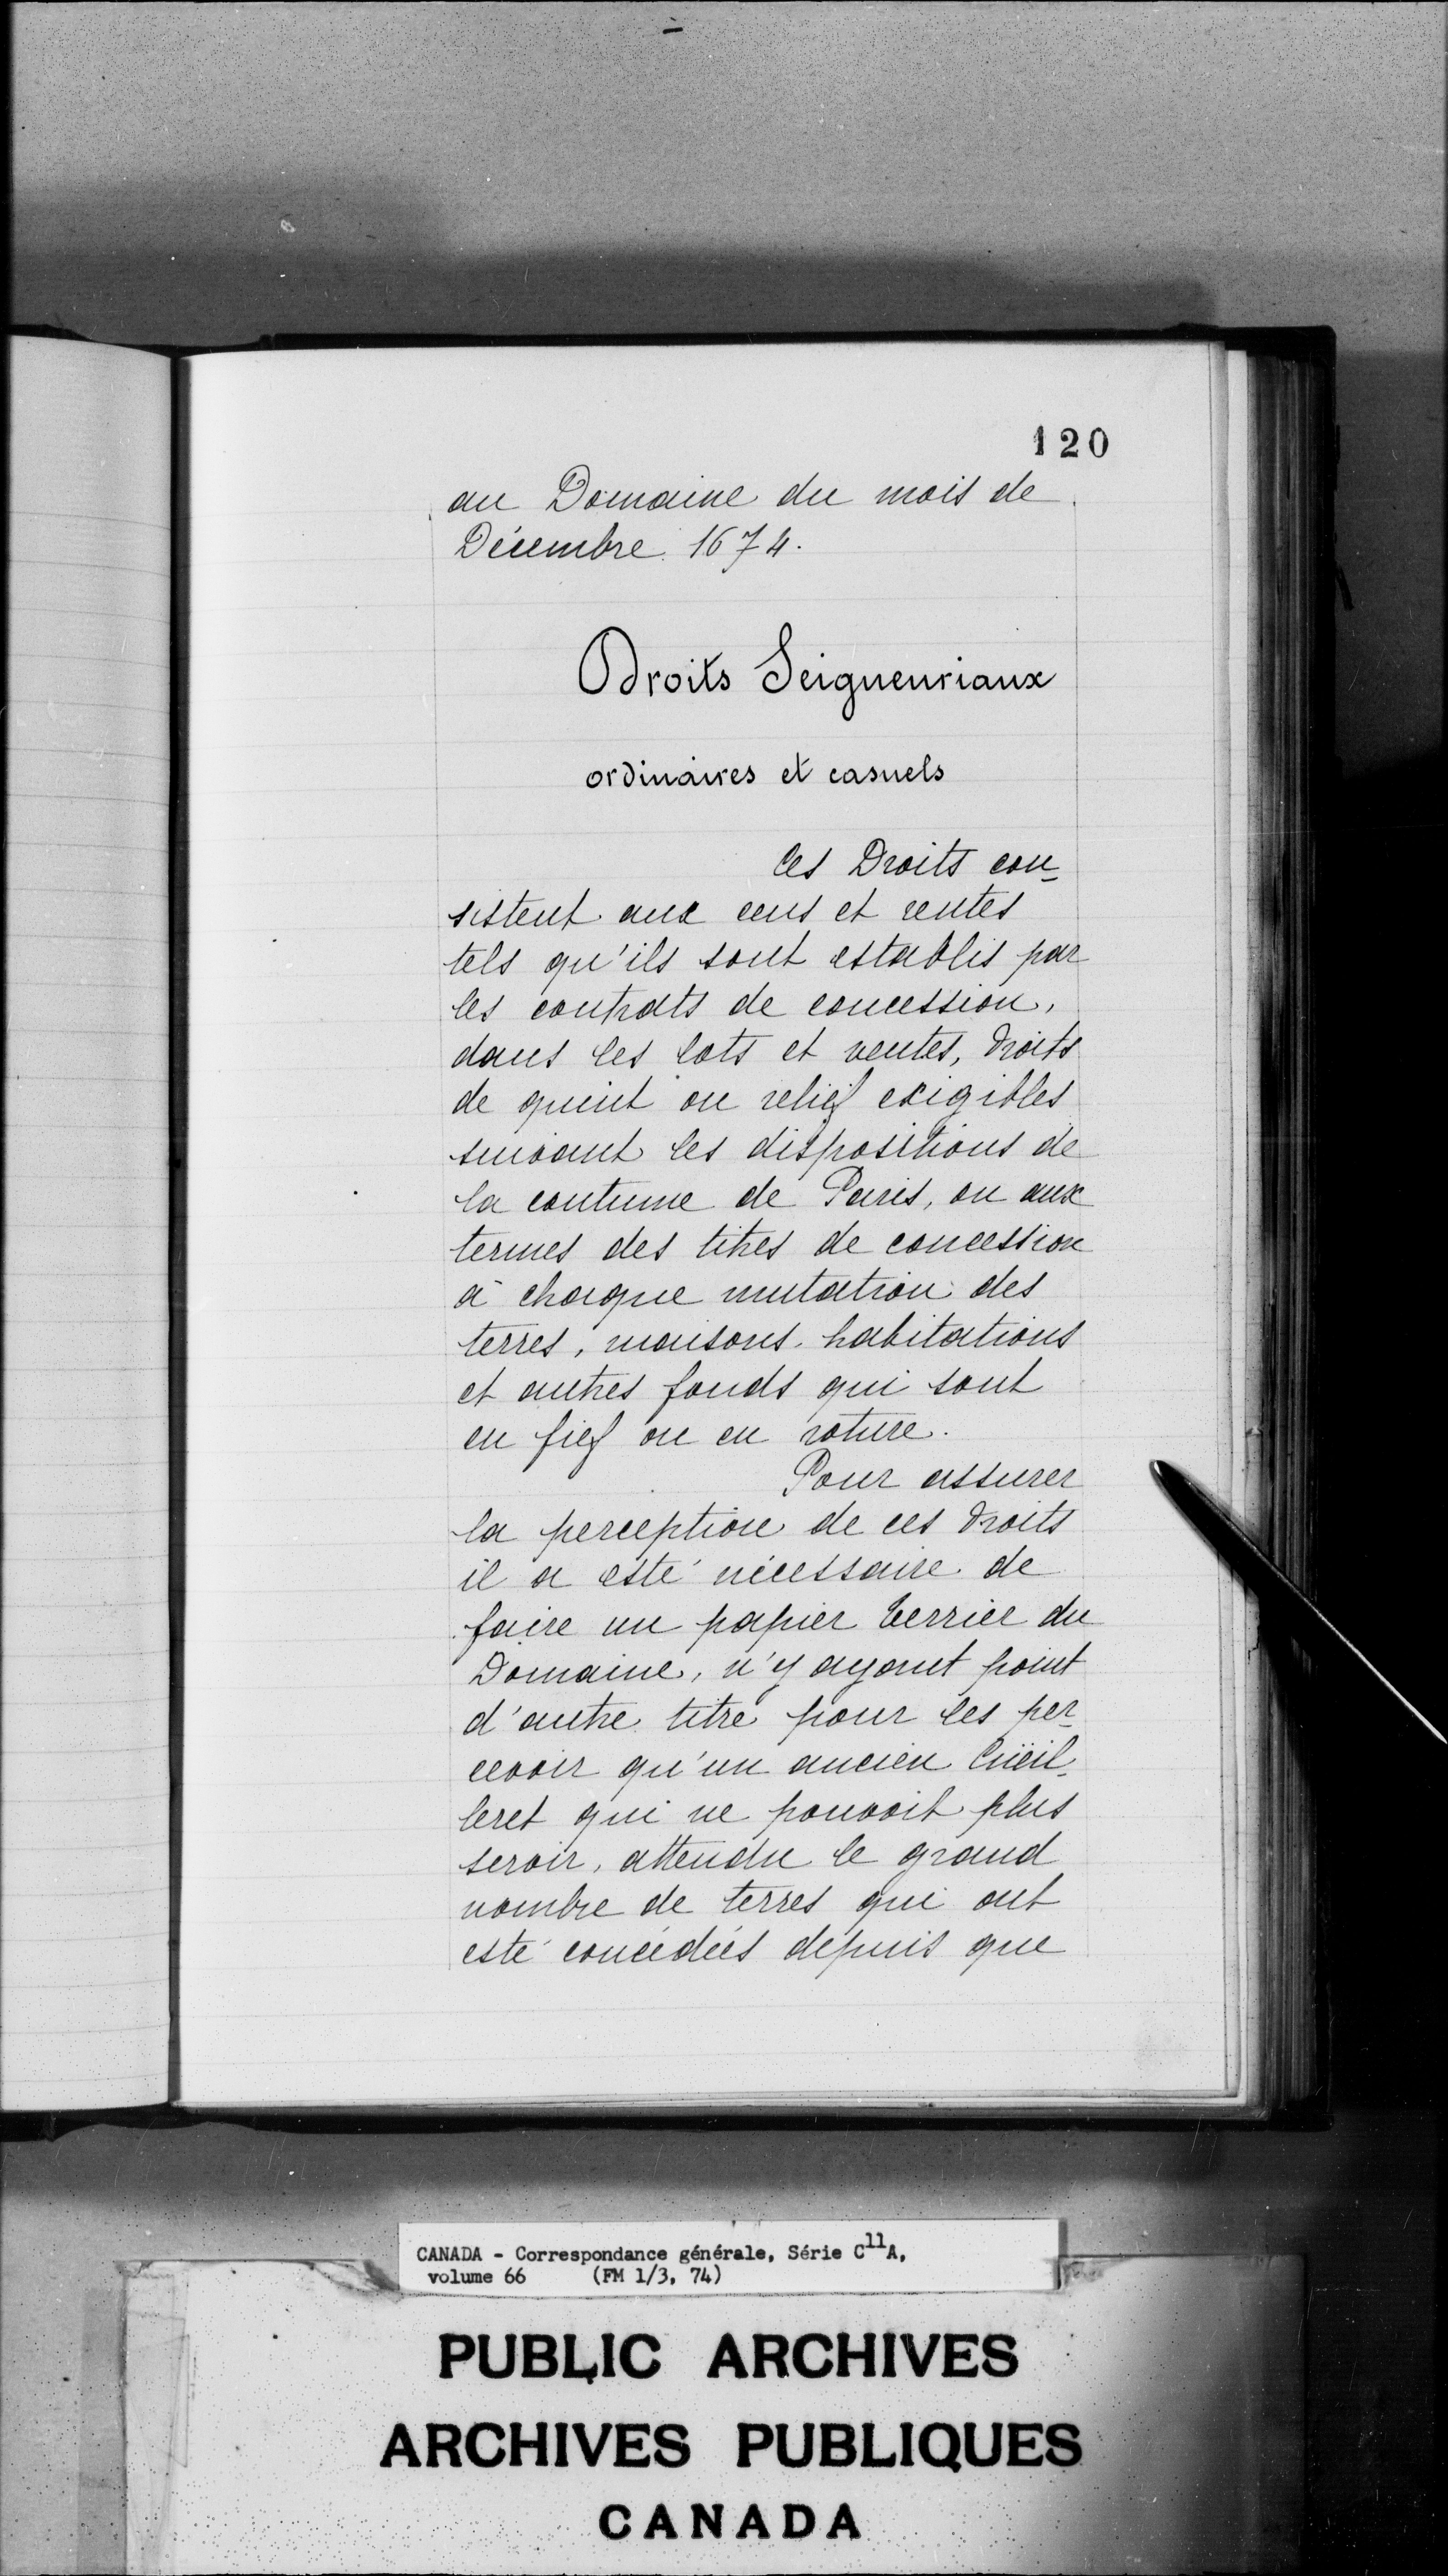 120
au Domaine du mois de
Décembre 1674.
Droits Seigneuriaux
ordinaires et casuels
Ces Droits con-
sistent aux cens et rentes
tels qu'ils sont establis par
les contrats de concession,
dans les lots et ventes, droits
de quint ou relief exigibles
suivant les dispositions de
la coutume de Paris, ou aux
termes des titres de concession
à chaque mutation des
terres, maisons, habitations
et autres fonds qui sont
en fief ou en roture.
Pour assurer
la perception de ces droits
il a esté nécessaire de
faire un papier terrier du
Domaine, n'y ayant point
d'autre titre pour les per-
cevoir qu'un ancien Cüeil-
leret qui ne pouvoit plus
servir, attendu le grand
nombre de terres qui ont
esté concédées depuis que
CANADA - Correspondance générale, Série C11A,
volume 66 (FM 1/3, 74)
PUBLIC ARCHIVES
ARCHIVES PUBLIQUES
CANADA